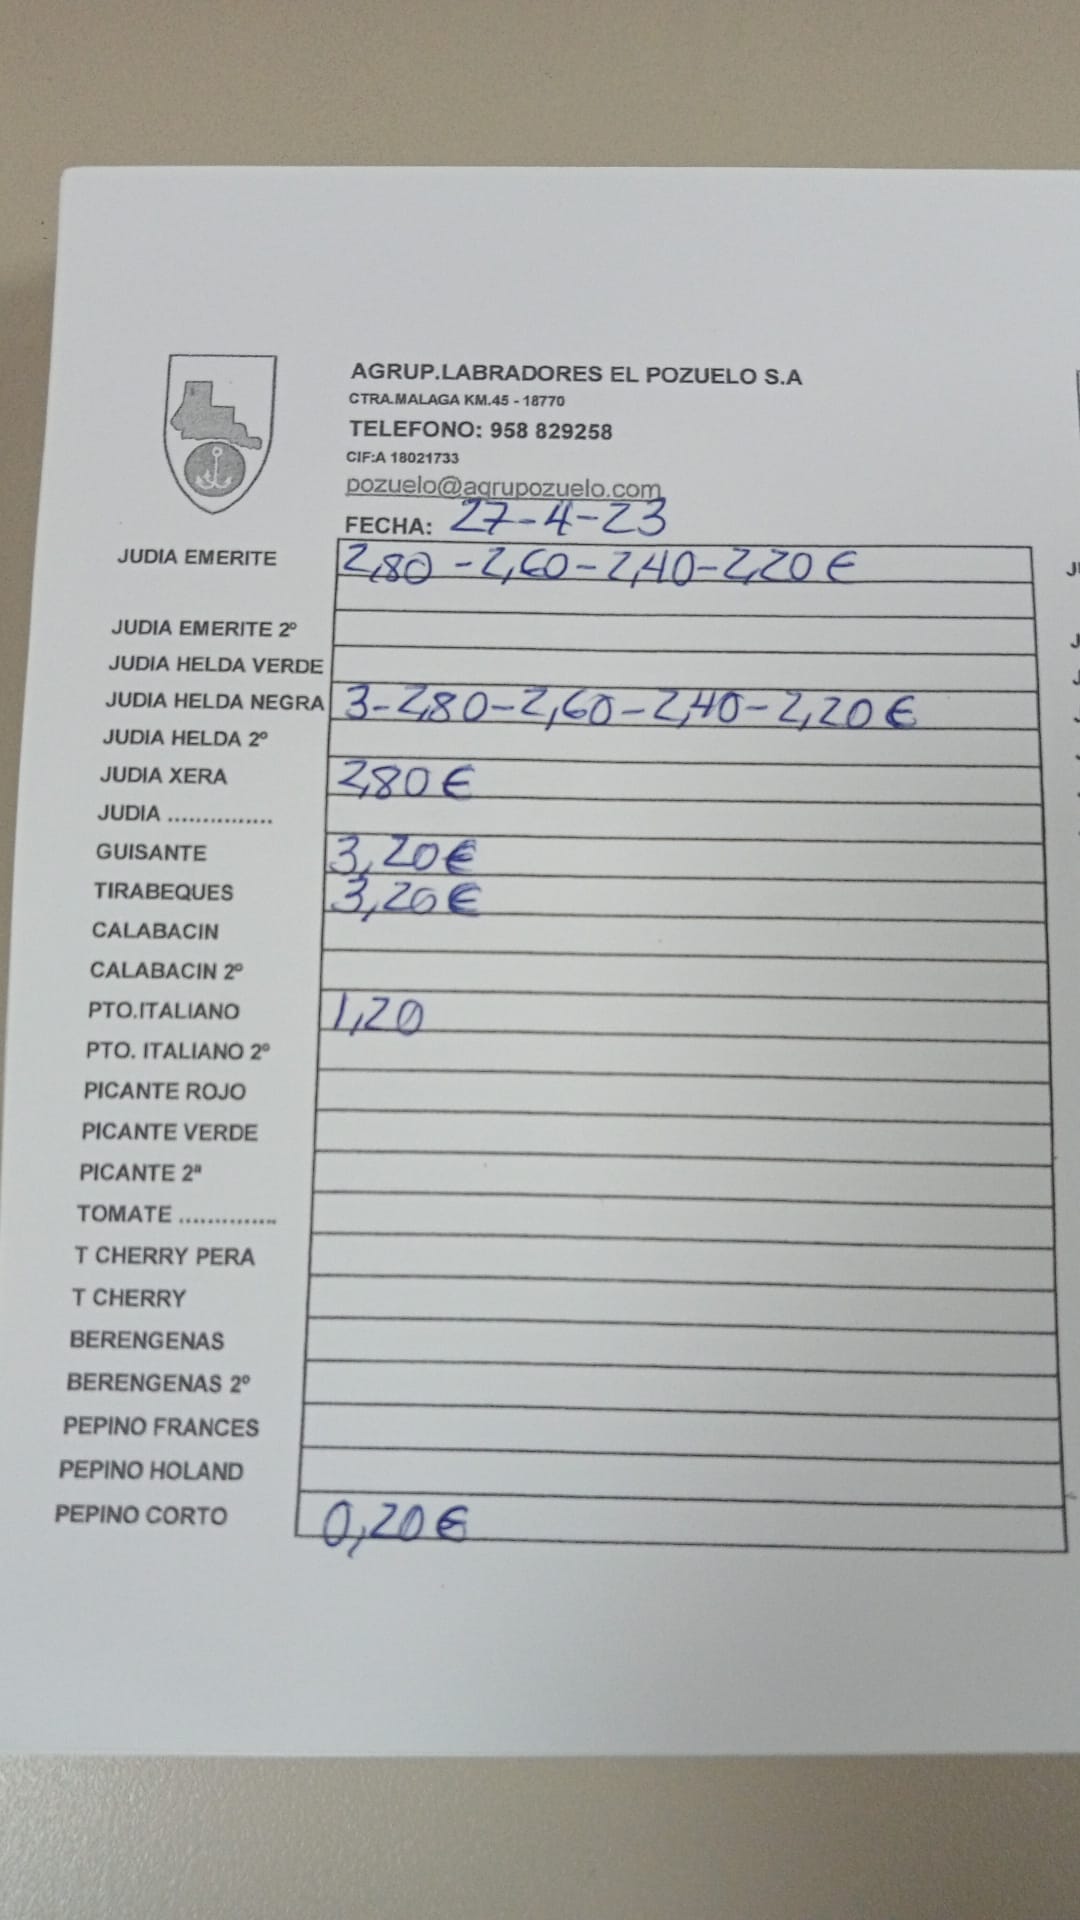 AGRUP.LABRADORES EL POZUELO S.A
CTRA.MALAGA KM.45 - 18770
TELEFONO: 958 829258
CIF:A 18021733
pozuelo@agrupozuelo.com
FECHA: 27-4-23
JUDIA EMERITE 2,80 - 2,60 - 2,40 - 2,20 €
JUDIA EMERITE 2º
JUDIA HELDA VERDE
JUDIA HELDA NEGRA 3 - 2,80 - 2,60 - 2,40 - 2,20 €
JUDIA HELDA 2º
JUDIA XERA 2,80 €
JUDIA ...............
GUISANTE 3,20 €
TIRABEQUES 3,20 €
CALABACIN
CALABACIN 2º
PTO.ITALIANO 1,20
PTO. ITALIANO 2º
PICANTE ROJO
PICANTE VERDE
PICANTE 2ª
TOMATE ..............
T CHERRY PERA
T CHERRY
BERENGENAS
BERENGENAS 2º
PEPINO FRANCES
PEPINO HOLAND
PEPINO CORTO 0,20 €